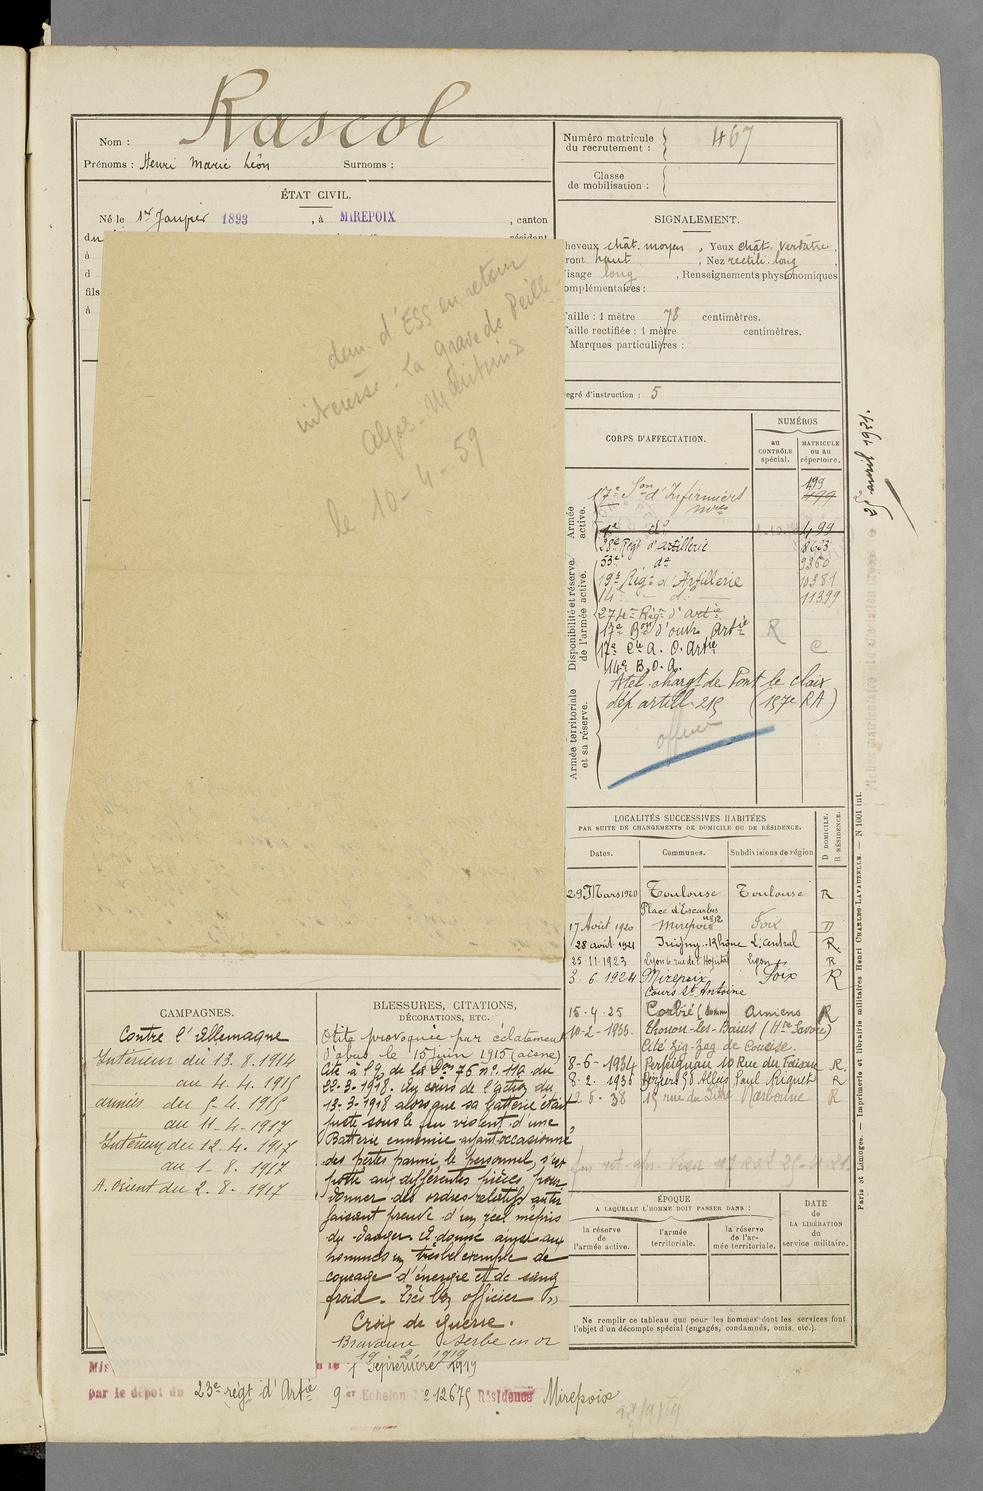 Rascol
Nom :
Prénoms : Henri Marie Léon Surnoms :
Numéro matricule
du recrutement : 467
Classe
de mobilisation :
ÉTAT CIVIL.
Né le 1er Janvier 1893, à MIREPOIX, canton
du résidant
à
d
fils
à
dem. d'ESS en retour
intéressé. La Grave de Peille
Alpes-Maritimes
le 10-4-59
SIGNALEMENT.
heveux chât. moyen, Yeux chât. verdâtre.
ront haut, Nez rectili. long,
isage long, Renseignements physionomiques
omplémentaires :
aille : 1 mètre 78 centimètres.
aille rectifiée : 1 mètre centimètres.
Marques particulières :
egré d'instruction : 5
CORPS D'AFFECTATION.
NUMÉROS
au
CONTRÔLE
spécial.
MATRICULE
ou au
répertoire.
Armée
active.
17e Son d'Infirmiers 499
mres 499
do 499
28e Régt d'artillerie 8623
53e do 9360
Disponibilité et réserve
de l'armée active.
19e Régt d'Artillerie 10381
14e d: 11399
274e Régt d'artie
17e Bon d'ouv. Artie R
17e Cie A. O. Artie C
14e B. O. A.
Armée territoriale
et sa réserve.
Atel. chargt de Pont de claix
dép artill. 219 (157e RA)
officier
avril 1921.
LOCALITÉS SUCCESSIVES HABITÉES
PAR SUITE DE CHANGEMENTS DE DOMICILE OU DE RÉSIDENCE.
D DOMICILE.
R RÉSIDENCE.
Dates. Communes. Subdivisions de région
29 Mars 1920 Toulouse Toulouse R
Place d'Escarbes
n° 12
17 Août 1920 Mirepoix Foix D
28 août 1921 Irigny-Rhône L. Central R.
25.11.1923 Lyon 6 rue de l'Hopital Lyon R
3-6.1924 Mirepoix Foix R
Cours St Antoine
15-4-25 Corbie (Somme) Amiens R
10-2-1933. Thonon-les-Bains (Hte Savoie)
Cité Zig-Zag de Concise.
8-6-1934 Perpignan 10 Rue du Faisan R.
8-2.1936 Béziers 58 Allées Paul Riquet R
2-8-38 15 rue du Narbonne R
Paris et Limoges. — Imprimerie et librairie militaires Henri CHARLES-LAVAUZELLE. — N 1001 int.
CAMPAGNES.
Contre l'Allemagne
Intérieur du 13.8.1914
au 4.4.1915
armées du 5-4.1915
au 11-4-1917
Intérieur du 12.4.1917
au 1-8.1917
A. Orient du 2-8-1917
BLESSURES, CITATIONS,
DÉCORATIONS, ETC.
Otite provoquée par éclatement
d'obus le 15 juin 1915 (aisne)
Cité à l'o. de la Don 76 n° 110 du
22-3-1918. Au cours de l'action du
13-3-1918 alors que sa batterie était
juste sous le feu violent d'une
Batterie ennemie ayant occasionné
des pertes parmi le personnel, s'est
porté aux différentes pièces pour
donner des ordres relatifs au tir
faisant preuve d'un réel mépris
du danger et donné ainsi aux
hommes un très bel exemple de
courage d'énergie et de sang
froid. Très bon officier »
Croix de Guerre.
Serbe en or
19. 2. 1919
ÉPOQUE
A LAQUELLE L'HOMME DOIT PASSER DANS :
la réserve
de
l'armée active.
l'armée
territoriale.
la réserve
de l'ar-
mée territoriale.
DATE
de
LA LIBÉRATION
du
service militaire.
Ne remplir ce tableau que pour les hommes dont les services font
l'objet d'un décompte spécial (engagés, condamnés, omis, etc.).
Mis 1 Septembre 1919
par le dépôt du 23e régt d'Artie 9er Echelon N° 12675 Résidence Mirepoix